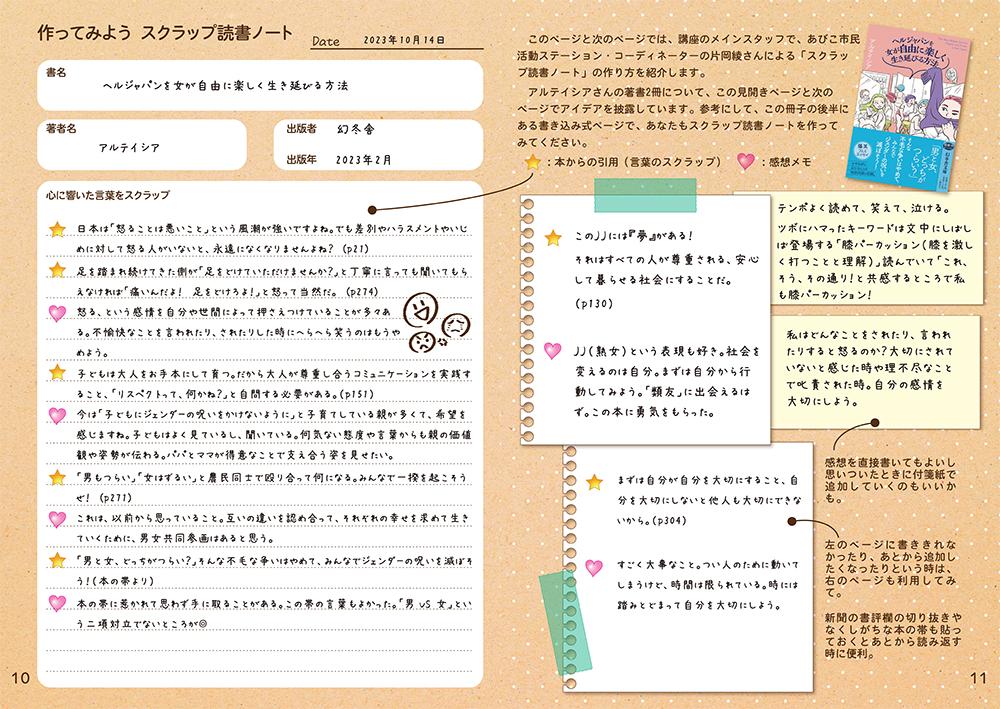 作ってみよう スクラップ読書ノート
Date 2023年10月14日
書名
ヘルジャパンを女が自由に楽しく生き延びる方法
著者名
アルテイシア
出版者 幻冬舎
出版年 2023年2月
心に響いた言葉をスクラップ
日本は「怒ることは悪いこと」という風潮が強いですよね。でも差別やハラスメントやいじ
めに対して怒る人がいないと、永遠になくなりませんよね? (p21)
足を踏まれ続けてきた側が「足をどけていただけませんか?」と丁寧に言っても聞いてもら
えなければ「痛いんだよ! 足をどけろよ!」と怒って当然だ。 (p274)
怒る、という感情を自分や世間によって押さえつけていることが多々あ
る。不愉快なことを言われたり、されたりした時にへらへら笑うのはもうや
めよう。
子どもは大人をお手本にして育つ。だから大人が尊重し合うコミュニケーションを実践す
ること、「リスペクトって、何かね?」と自問する必要がある。(p151)
今は「子どもにジェンダーの呪いをかけないように」と子育てしている親が多くて、希望を
感じますね。子どもはよく見ているし、聞いている。何気ない態度や言葉からも親の価値
観や姿勢が伝わる。パパとママが得意なことで支え合う姿を見せたい。
「男もつらい」「女はずるい」と農民同士で殴り合って何になる。みんなで一揆を起こそう
ぜ! (p271)
これは、以前から思っていること。互いの違いを認め合って、それぞれの幸せを求めて生き
ていくために、男女共同参画はあると思う。
「男と女、どっちがつらい?」そんな不毛な争いはやめて、みんなでジェンダーの呪いを滅ぼそ
う!(本の帯より)
本の帯に惹かれて思わず手に取ることがある。この帯の言葉もよかった。「男 VS 女」とい
う二項対立でないところが◎
10
このページと次のページでは、講座のメインスタッフで、あびこ市民
活動ステーション・コーディネーターの片岡綾さんによる「スクラッ
プ読書ノート」の作り方を紹介します。
アルテイシアさんの著書2冊について、この見開きページと次の
ページでアイデアを披露しています。参考にして、この冊子の後半に
ある書き込み式ページで、あなたもスクラップ読書ノートを作って
みてください。
:本からの引用(言葉のスクラップ) :感想メモ
ヘルジャパンを
女が自由に楽しく
生き延びる方法
アルテイシア
「男と女、
どっちが
つらい?」
このJJには『夢』がある!
それはすべての人が尊重される、安心
して暮らせる社会にすることだ。
(p130)
JJ(熟女)という表現も好き。社会を
変えるのは自分。まずは自分から行
動してみよう。「類友」に出会えるは
ず。この本に勇気をもらった。
テンポよく読めて、笑えて、泣ける。
ツボにハマったキーワードは文中にしばし
ば登場する「膝パーカッション(膝を激し
く打つことと理解)」読んでいて「これ、
そう、その通り!と共感するところで私
も膝パーカッション!
私はどんなことをされたり、言われ
たりすると怒るのか?大切にされて
いないと感じた時や理不尽なこと
で叱責された時。自分の感情を
大切にしよう。
感想を直接書いてもよいし
思いついたときに付箋紙で
追加していくのもいいか
も。
まずは自分が自分を大切にすること、自
分を大切にしないと他人も大切にできな
いから。(p304)
すごく大事なこと。つい人のために動いて
しまうけど、時間は限られている。時には
踏みとどまって自分を大切にしよう。
左のページに書ききれな
かったり、あとから追加し
たくなったりという時は、
右のページも利用してみ
て。
新聞の書評欄の切り抜きや
なくしがちな本の帯も貼っ
ておくとあとから読み返す
時に便利。
11